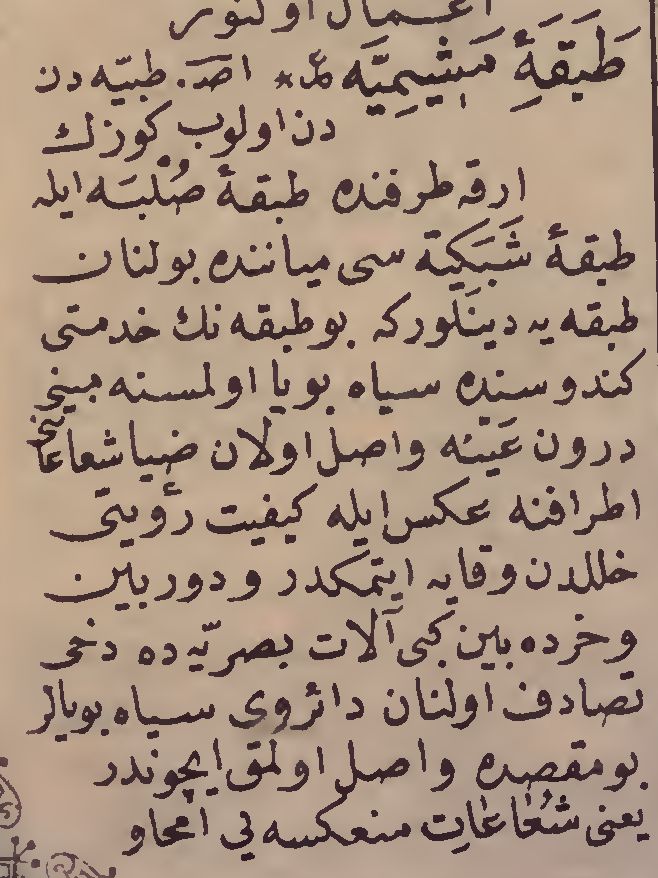 اعمال اولنور
طَبَقَهٔ مَشِیمِیَّه عر* اصـ. طبیّه دن
دن اولوب كوزك
ارقه طرفنده طبقهٔ صُلْبَه ایله
طبقهٔ شَبَكِیَة سی میاننده بولنان
طبقه یه دینلوركه بوطبقه نك خدمتی
كندوسنده سیاه بویا اولمسنه مبنی
درون عَیْنَه واصل اولان ضیاشعاعاتنی
اطرافنه عكس ایله كیفیت رؤیتی
خللدن وقایه ایتمكدر ودوربین
وخرده بین كبی آلات بصریّه ده دخی
تصادف اولنان دائروی سیاه بویالر
بومقصده واصل اولمق ایچوندر
یعنی شُعاعاتِ منعكسه یی امحاو